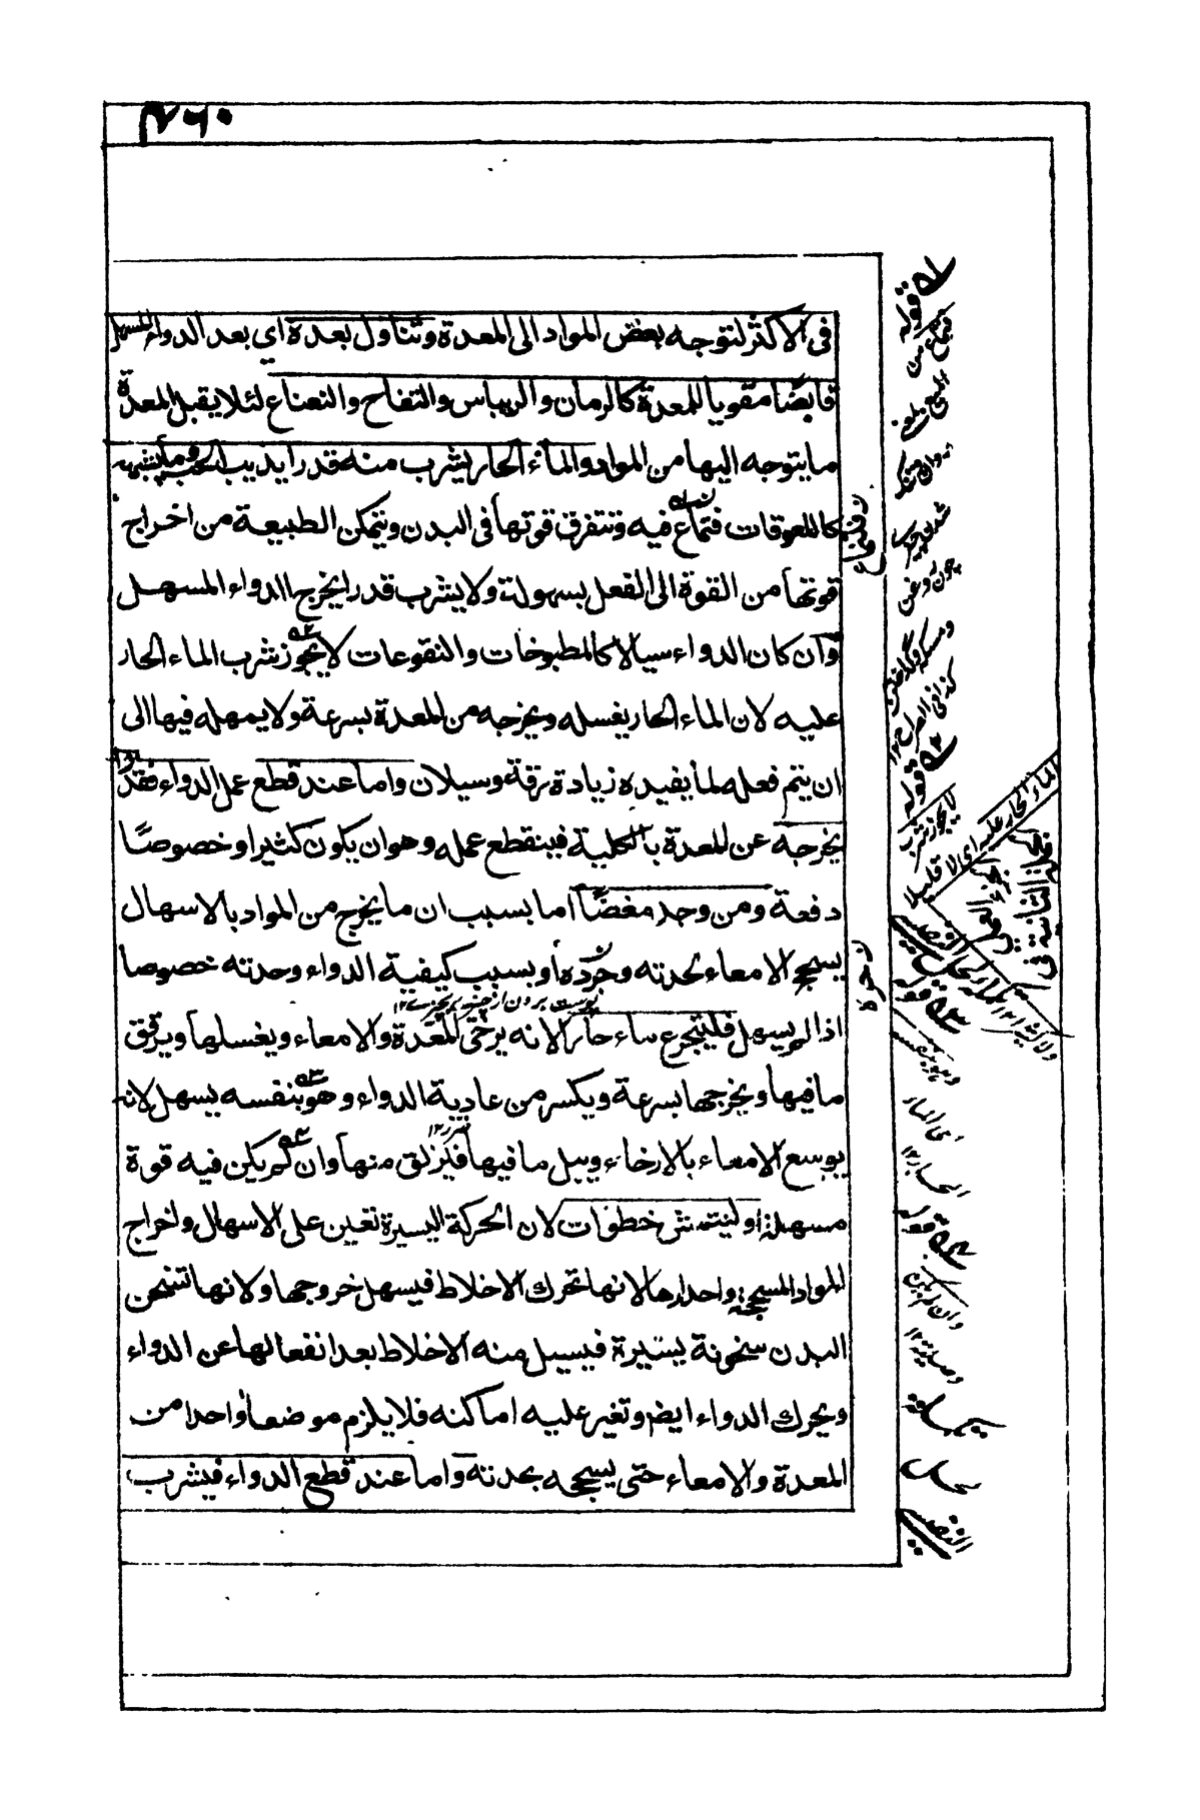 ٤٦٠
فى الاكثر لتوجه بعض المواد الى المعدة وتناول بعدة اي بعد الدواء المسهل
قابضًا مقويا للمعدة كالرمان والريباس والتفاح والنعناع لئلا يقبل المعدة
ما يتوجه اليها من المواد والماء الحار يشرب منه قدر ايذيب الحب وما يشبهه
كاللعوقات فتماع فيه وتتفرق قوتها فى البدن ويتمكن الطبيعة من اخراج
قوتها من القوة الى الفعل بسهولة ولا يشرب قدر ايخرج الدواء المسهل
وان كان الدواء سيالا كالمطبوخات والنقوعات لا يجوز شرب الماء الحار
عليه لان الماء الحار يغسله ويخرجه من المعدة بسرعة ولا يمهله فيها الى
ان يتم فعله لما يفيده زيادة رقة وسيلان واما عند قطع عمل الدواء فقد
يخرجه عن المعدة بالكلية فينقطع عمله وهو ان يكون كثيرا وخصوصًا
دفعة ومن وجد مغصًا اما بسبب ان ما يخرج من المواد بالاسهال
يسحج الامعاء لحدته وجرده او بسبب كيفية الدواء وحدته خصوصا
اذا لم يسهل فليتجرع ماء حارا لانه يرخى المعدة والامعاء ويغسلها ويرقق
ما فيها ويخرجها بسرعة ويكسر من عادية الدواء وهو بنفسه يسهل لانه
يوسع الامعاء بالارخاء ويبل ما فيها فيزلق منها وان لم يكن فيه قوة
مسهلة او ليتمش خطوات لان الحركة اليسيرة تعين على الاسهال واخراج
المواد المسحجة واحدارها لانها تحرك الاخلاط فيسهل خروجها ولانها تسخن
البدن سخونة يسيرة فيسيل منه الاخلاط بعد انفعالها عن الدواء
ويحرك الدواء ايضم وتغير عليه اماكنه فلا يلزم موضعا واحدا من
المعدة والامعاء حتى يسحجه بحدته واما عند قطع الدواء فيشرب
ن فينماع
۱ه قوله
۲ه قوله
لا يجوز شرب
الماء الحار عليه اى الا قليلا
۳ه قوله
وهو بنفسه
اى الماء
الحار ۱۲
۴ه قوله
وان لم يكن
النفيسى